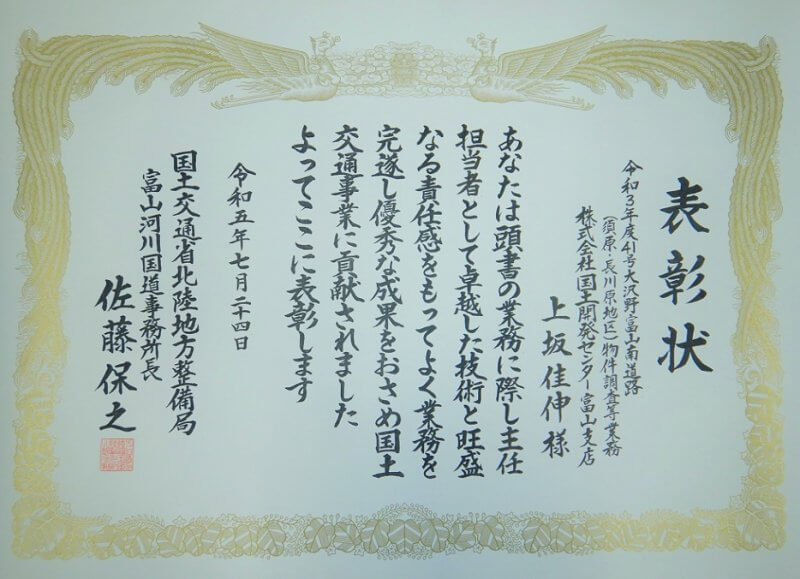 表彰状
令和3年度41号大沢野富山南道路
(須原・長川原地区)物件調査等業務
株式会社国土開発センター富山支店
上坂佳伸様
あなたは頭書の業務に際し主任
担当者として卓越した技術と旺盛
なる責任感をもってよく業務を
完遂し優秀な成果をおさめ国土
交通事業に貢献されました
よってここに表彰します
令和五年七月二十四日
国土交通省北陸地方整備局
富山河川国道事務所長
佐藤保之